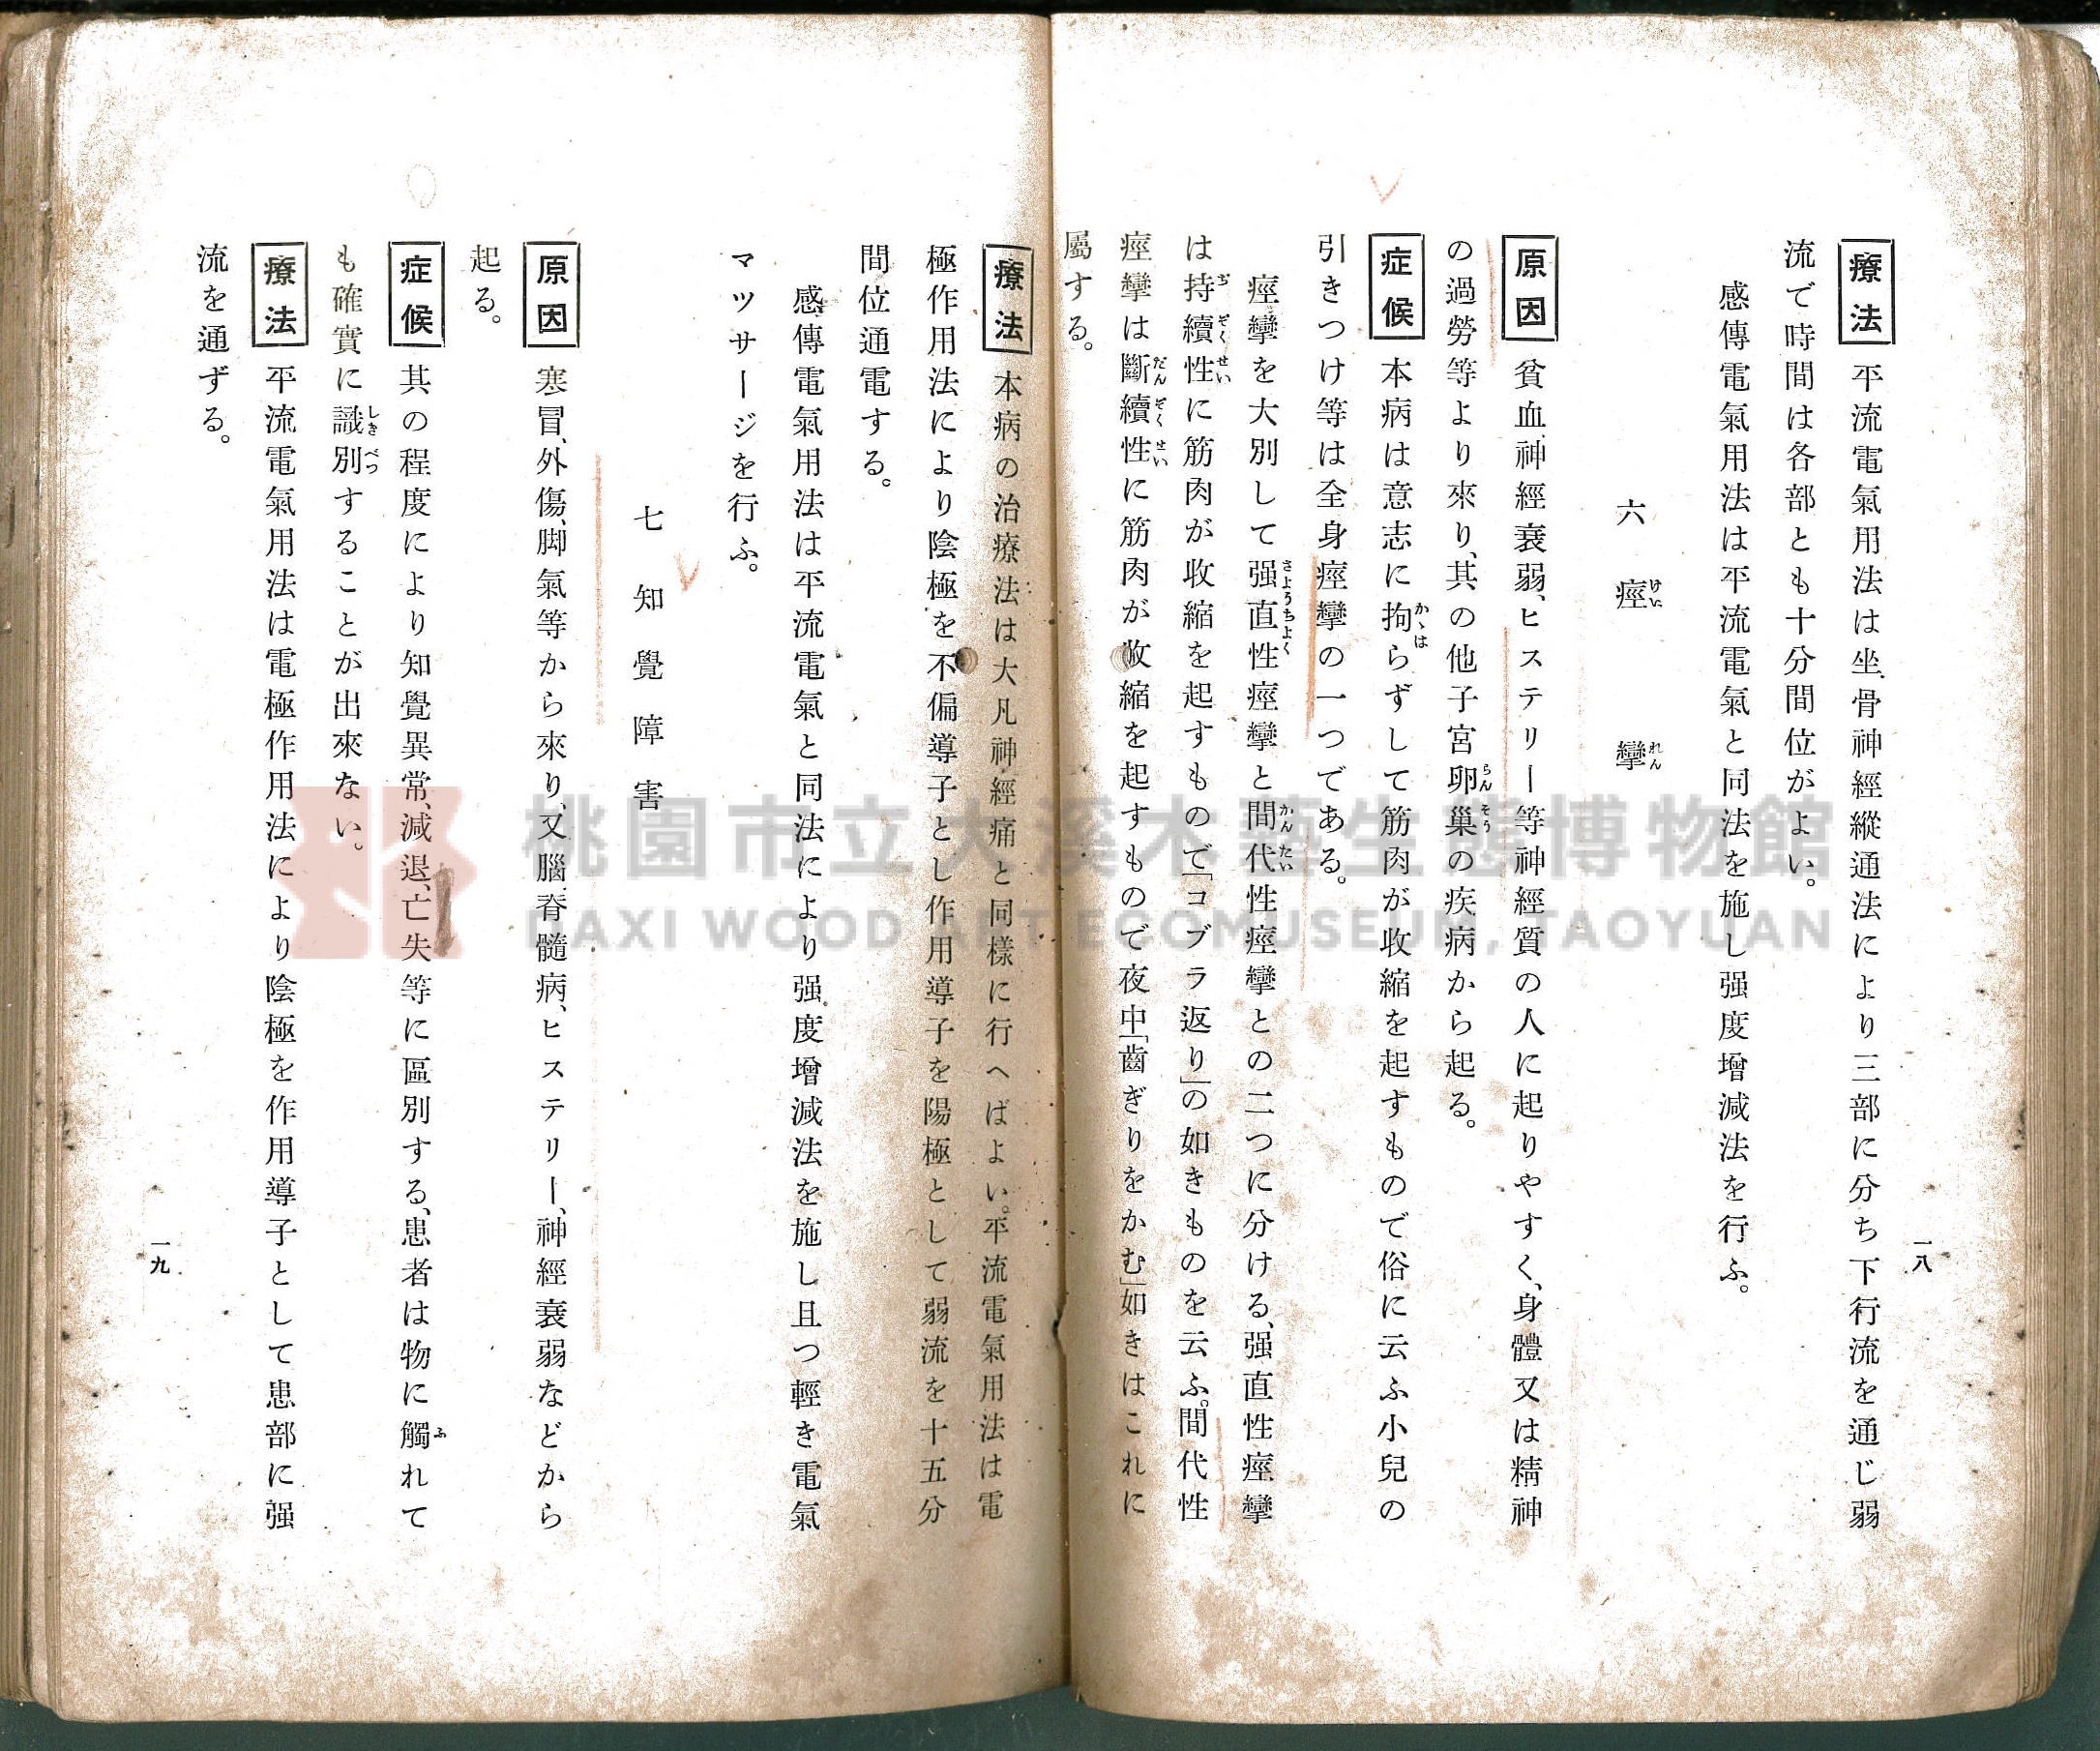 一八
療法 平流電氣用法は坐骨神經縱通法により三部に分ち下行流を通じ弱
流で時間は各部とも十分間位がよい。
感傳電氣用法は平流電氣と同法を施し强度增減法を行ふ。
六 痙攣
けいれん
原因 貧血、神經衰弱、ヒステリー等神經質の人に起りやすく、身體又は精神
の過勞等より來り、其の他子宮卵巢の疾病から起る。
らんそう
症候 本病は意志に拘らずして筋肉が收縮を起すもので俗に云ふ小兒の
かゝは
引きつけ等は全身痙攣の一つである。
痙攣を大別して强直性痙攣と間代性痙攣との二つに分ける、强直性痙攣
きようちよく かんたい
は持續性に筋肉が收縮を起すもので「コブラ返り」の如きものを云ふ。間代性
ぢぞくせい
痙攣は斷續性に筋肉が收縮を起すもので夜中「齒ぎりをかむ」如きはこれに
だんぞくせい
屬する。
療法 本病の治療法は大凡神經痛と同樣に行へばよい。平流電氣用法は電
極作用法により陰極を不偏導子とし作用導子を陽極として弱流を十五分
間位通電する。
感傳電氣用法は平流電氣と同法により强度增減法を施し且つ輕き電氣
マツサージを行ふ。
七 知覺障害
原因 寒冒、外傷、脚氣等から來り、又腦、脊髓病、ヒステリー、神經衰弱などから
起る。
症候 其の程度により知覺異常、減退、亡失等に區別する、患者は物に觸れて
ふ
も確實に識別することが出來ない。
しきべつ
療法 平流電氣用法は電極作用法により陰極を作用導子として患部に强
流を通ずる。
一九
桃園市立大溪木藝生態博物館
DAXI WOOD ART ECOMUSEUM, TAOYUAN